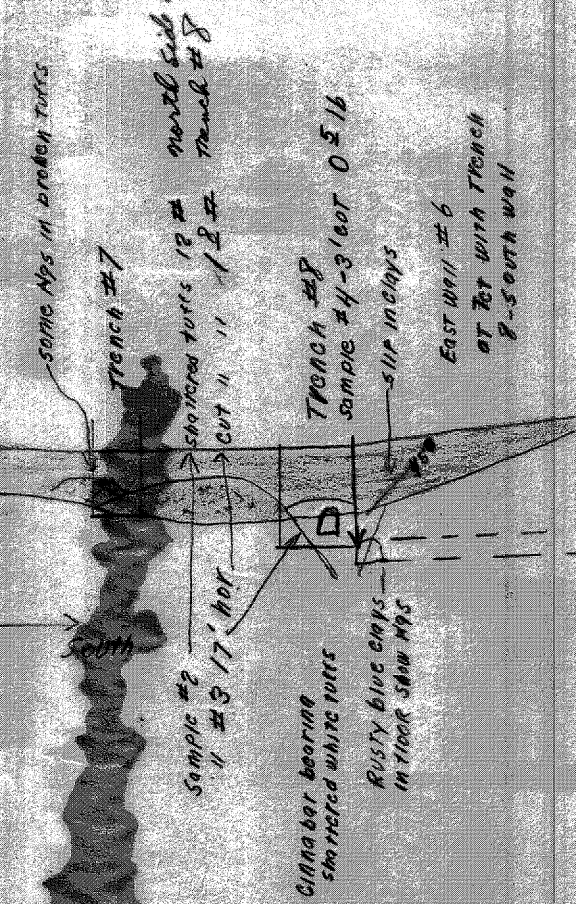 some HgS in broken tuffs
Trench #7
north side
Trench #8
shattered tuffs 12 #
cut " " 18 #
Trench #8
Sample #4 - 3' cut
slip in clays
East wall #6
at Int with Trench
8 - South wall
South
Sample #2
" #3 17' hor
D
Cinnabar bearing
shattered white tuffs
Rusty blue clays
in floor show HgS